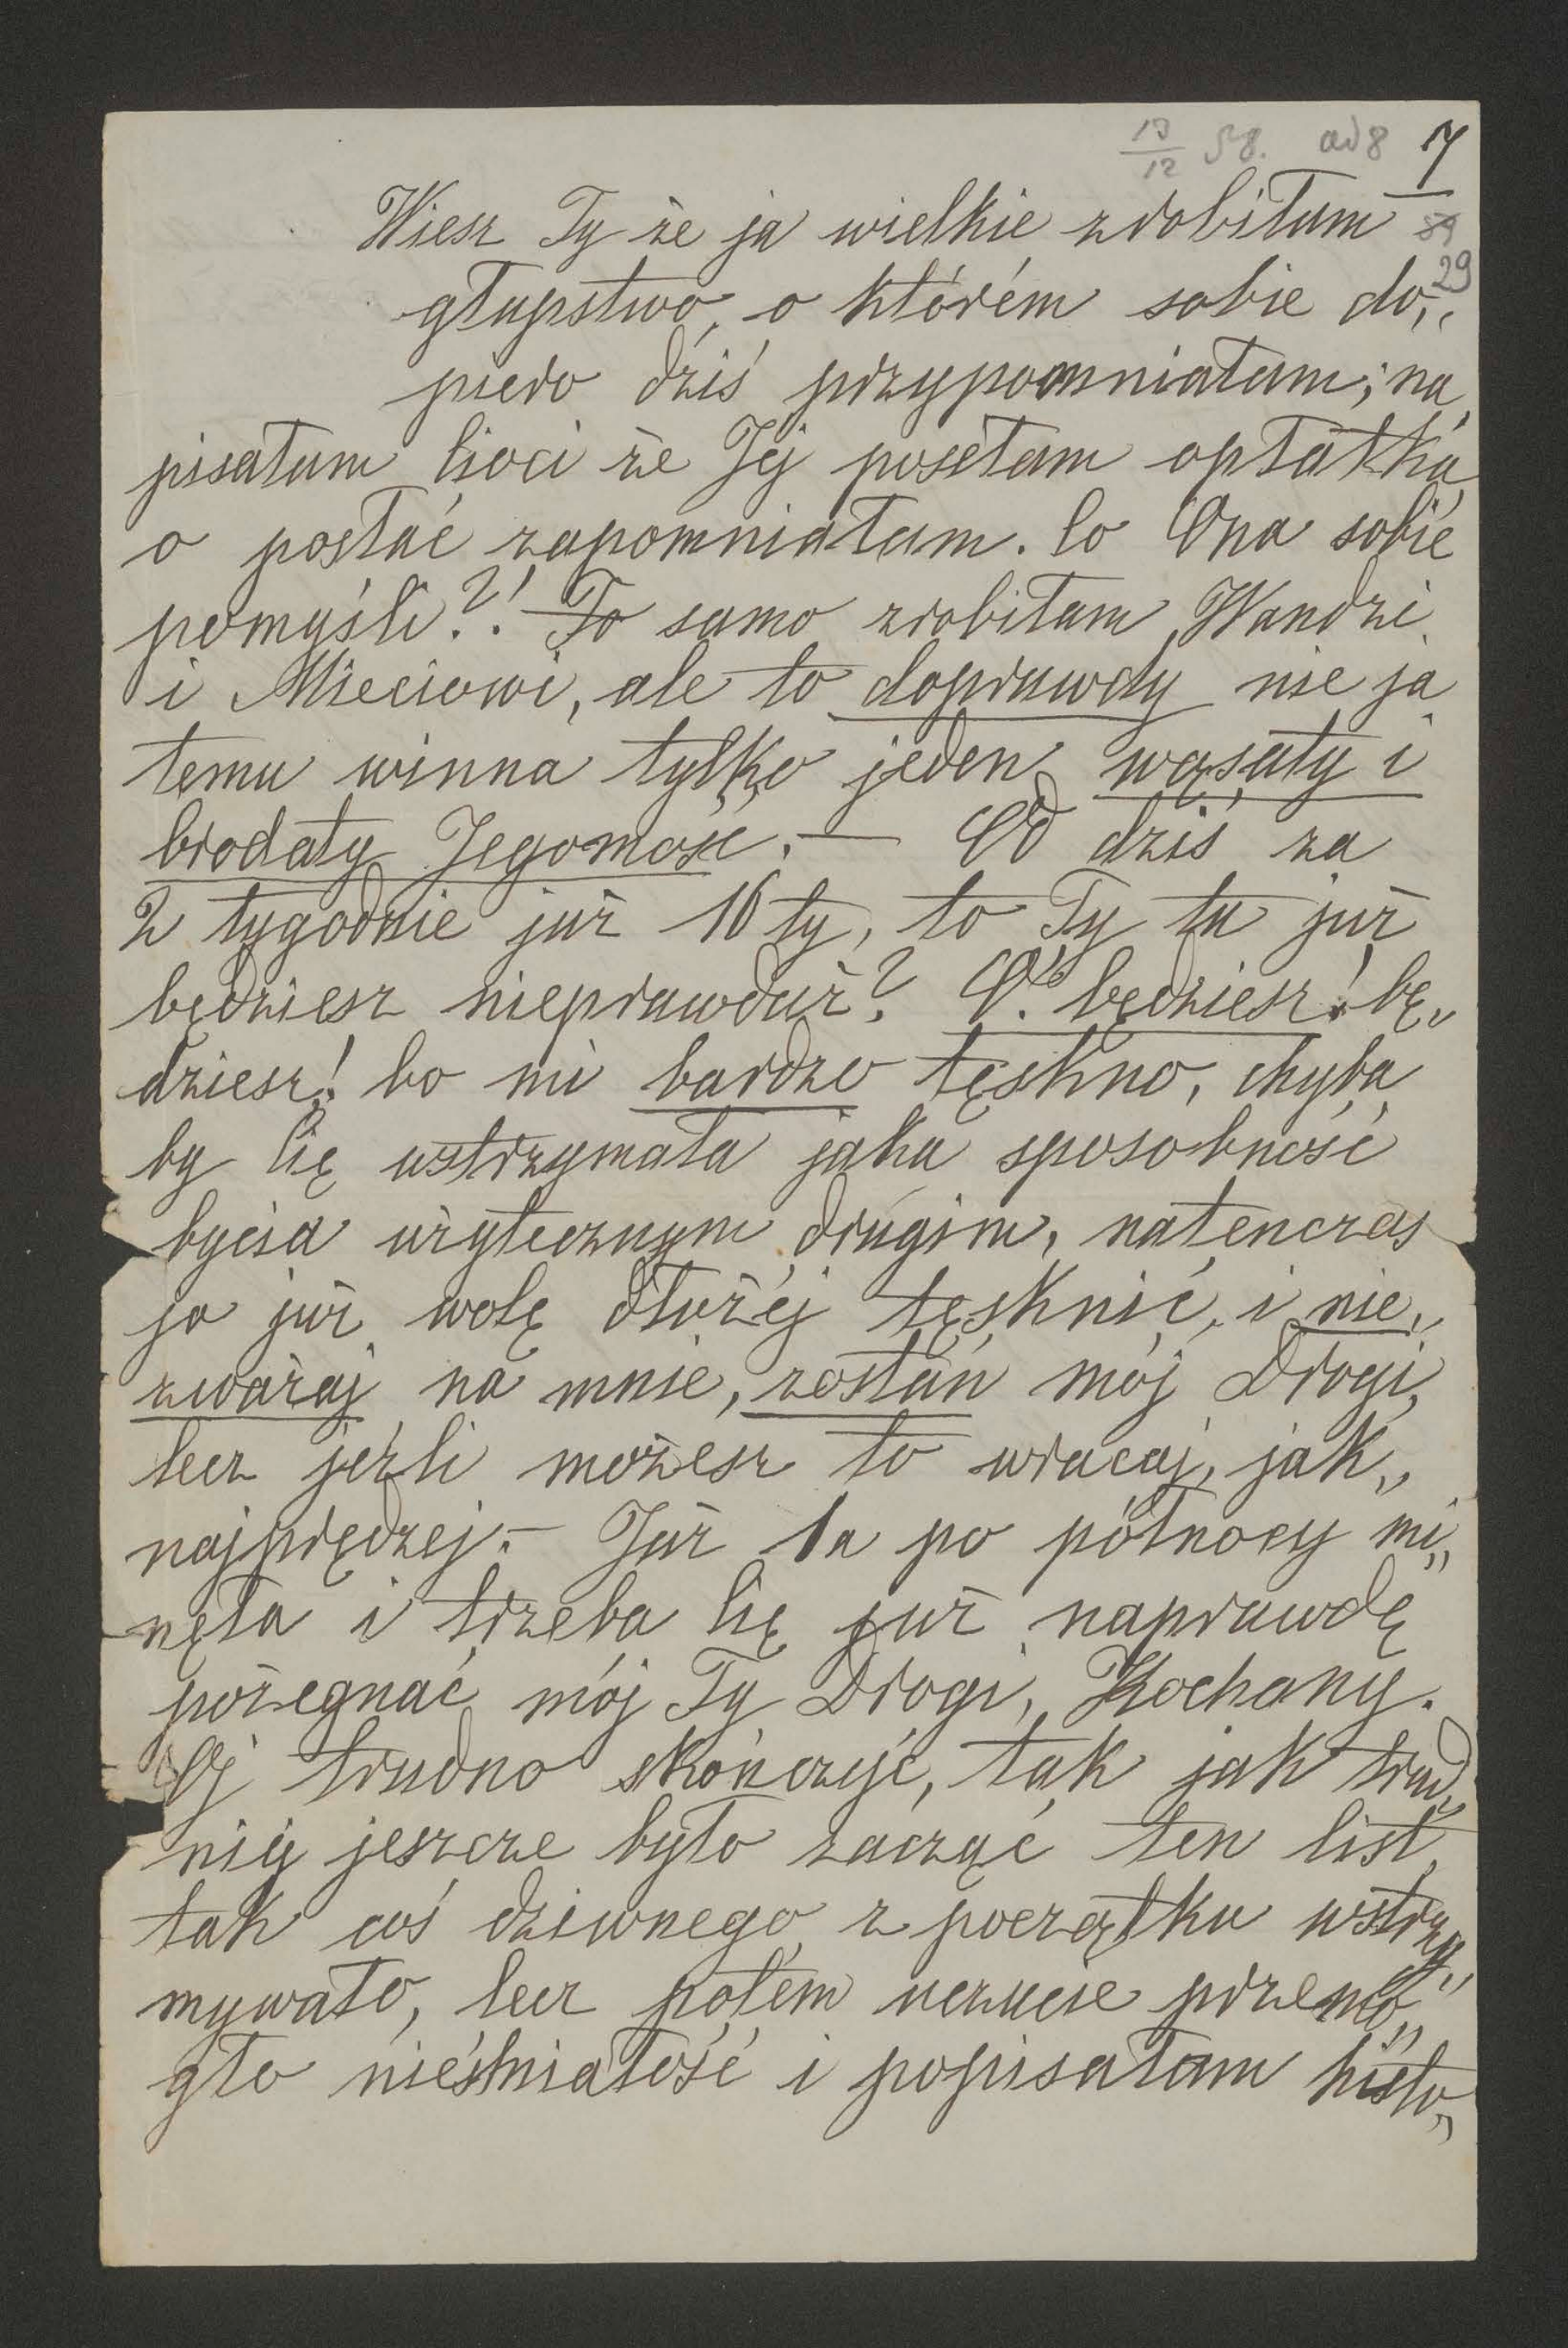 13/12 58. ad 8 7
Wiesz Ty że ja wielkie zrobiłam
29
głupstwo, o którém sobie do„
piero dziś przypomniałam; na
pisałam Cioci że Jej posełam opłatka
o posłać zapomniałam. Co Ona sobie
pomyśli?! To samo zrobiłam Wandzi
i Mieciowi, ale to doprawdy nie ja
temu winna tylko jeden wąsaty i
brodaty Jegomość. — Od dziś za
2 tygodnie już 16ty, to Ty tu już
będziesz nieprawdaż? O! będziesz! bę„
dziesz! bo mi bardzo tęskno, chyba
by Cię wstrzymała jaka sposobność
bycia użytecznym drugim, natenczas
ja już wolę dłużéj tęsknić, i nie„
zważaj na mnie, zostań mój Drogi,
lecz jeźli możesz to wracaj, jak„
najprędzej. — Już 1a po północy mi„
nęła i trzeba Cię już naprawdę
pożegnać mój Ty Drogi, Kochany.
Oj trudno skończyć, tak jak trud„
niéj jeszcze było zacząć ten list,
tak coś dziwnego z początku wstrzy„
mywało, lecz potém uczucie przemo„
gło nieśmiałość i popisałam histo„